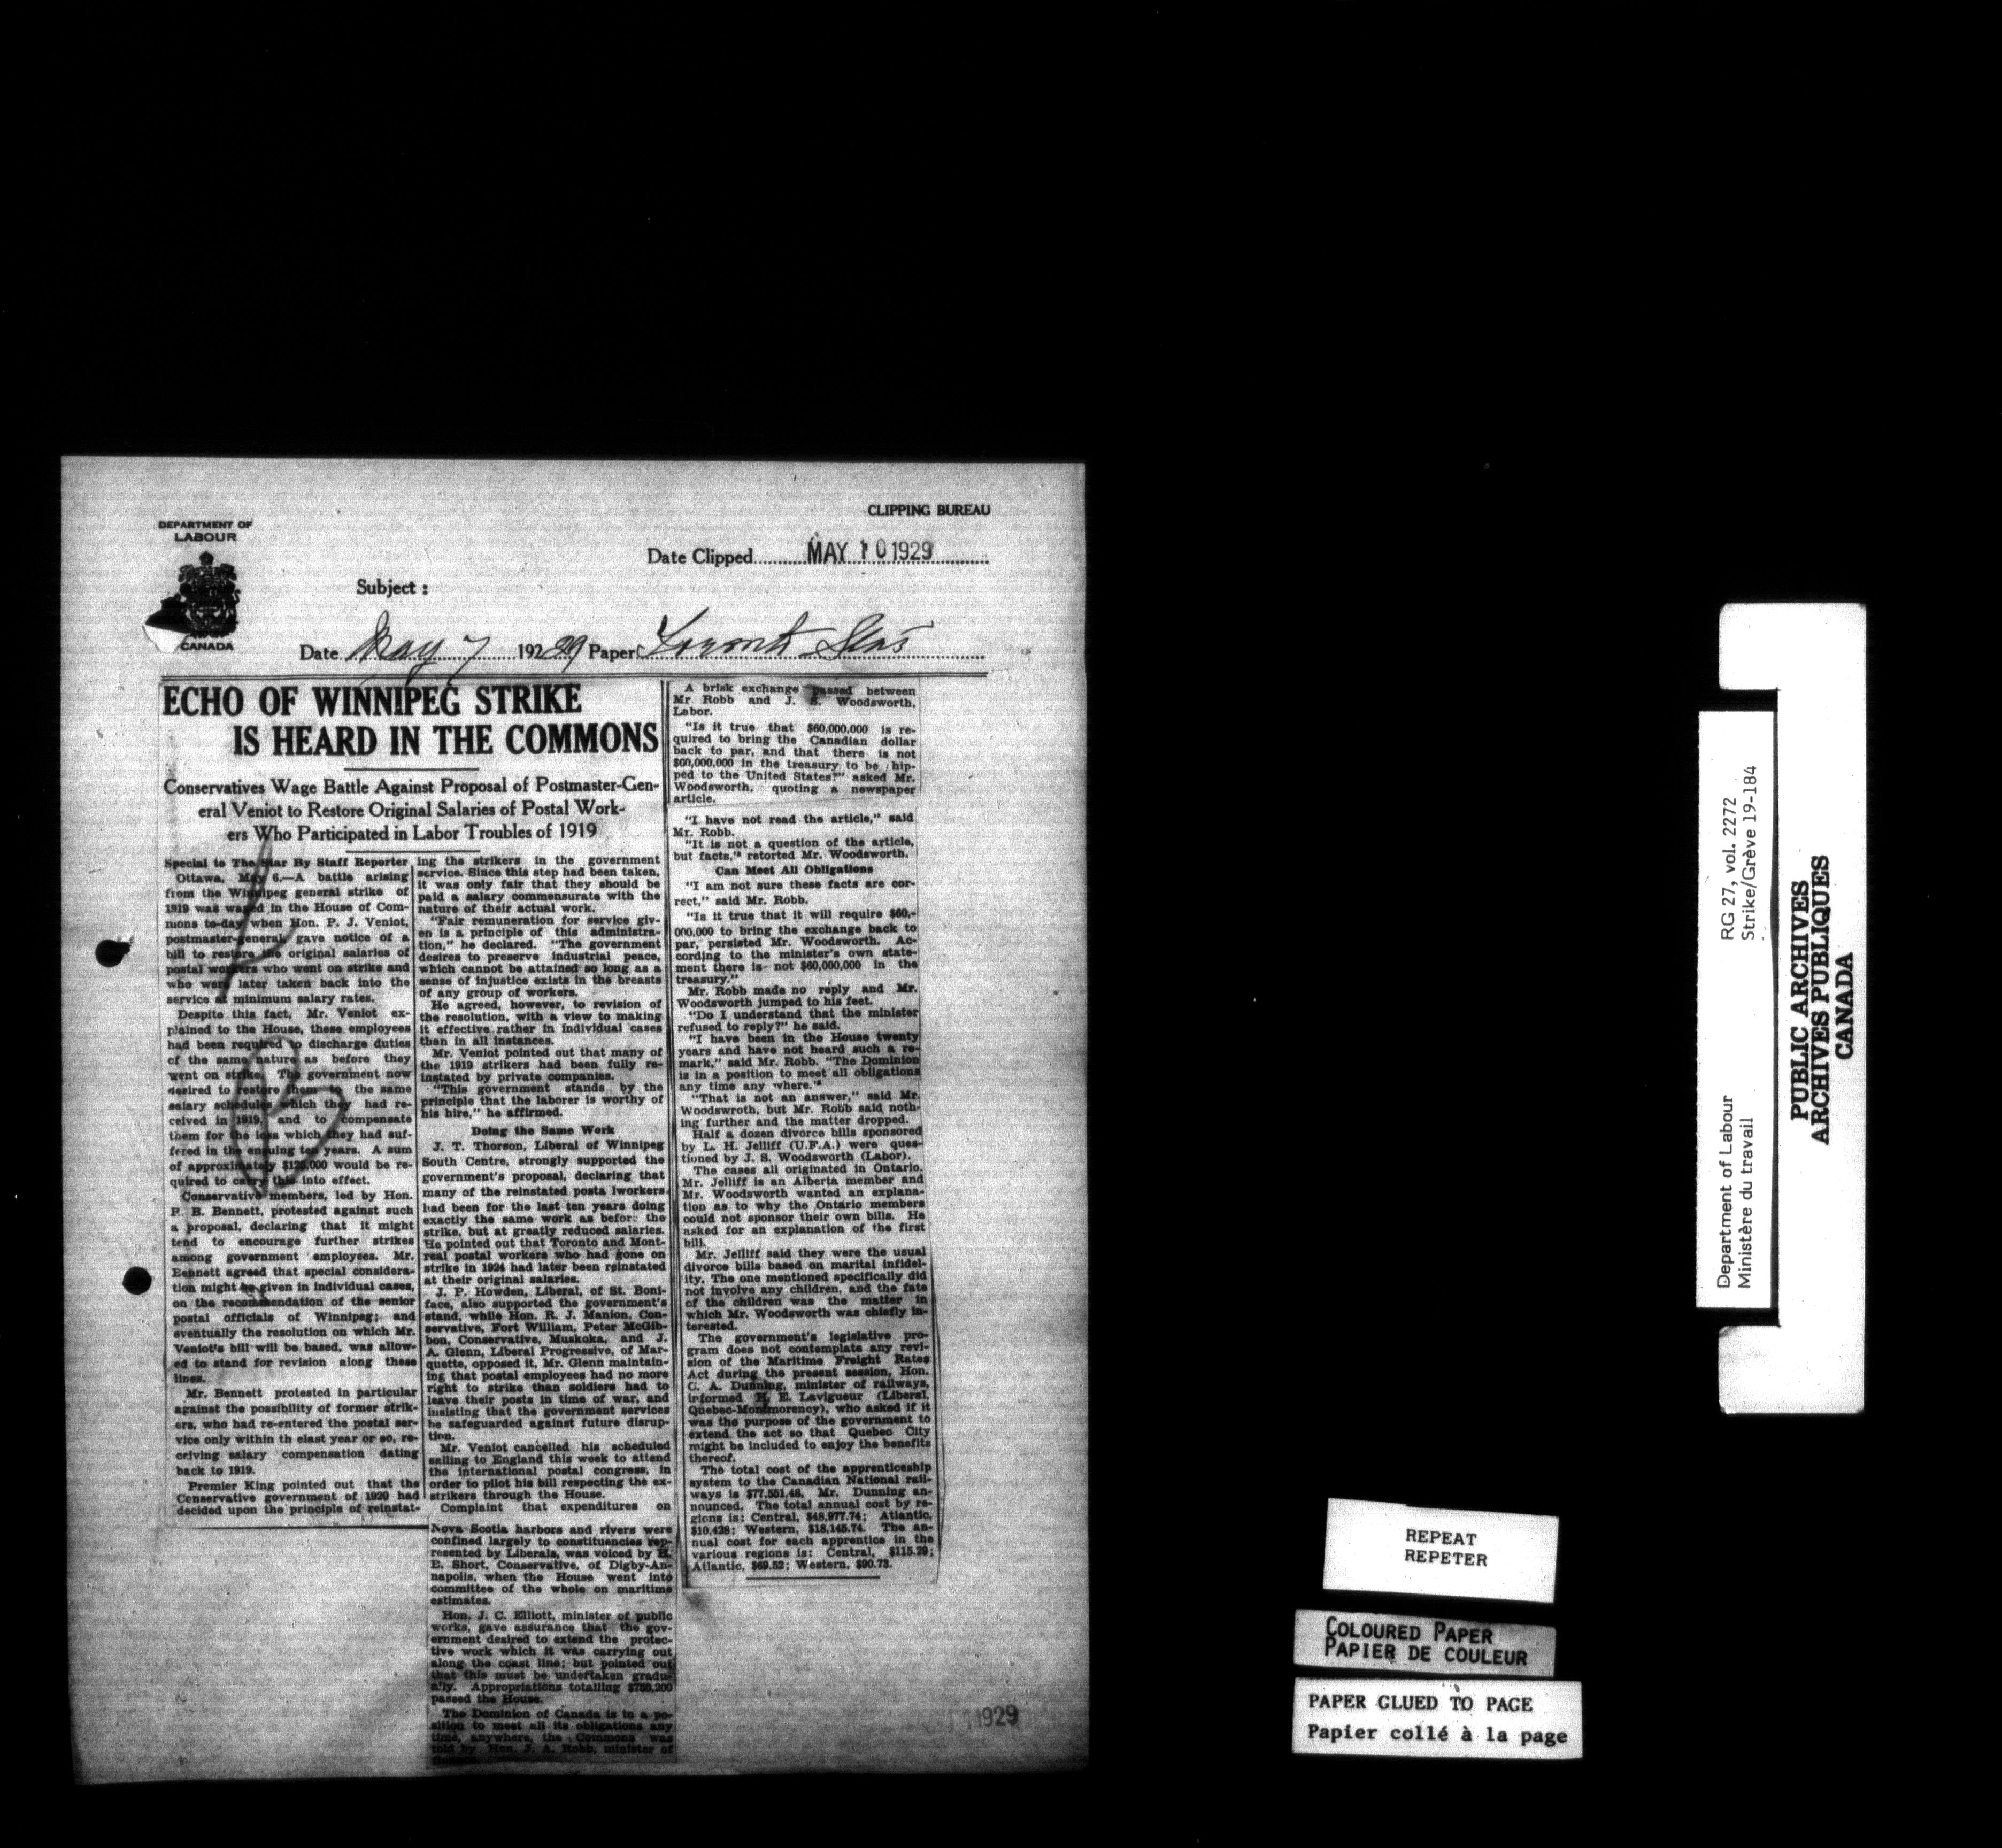 CLIPPING BUREAU
DEPARTMENT OF
LABOUR
CANADA
Date Clipped MAY 10 1929
Subject :
Date May 7 19229 Paper Toronto Star
ECHO OF WINNIPEG STRIKE
IS HEARD IN THE COMMONS
Conservatives Wage Battle Against Proposal of Postmaster-Gen-
eral Veniot to Restore Original Salaries of Postal Work-
ers Who Participated in Labor Troubles of 1919
Special to The Star By Staff Reporter
Ottawa, May 6.—A battle arising
from the Winnipeg general strike of
1919 was waged in the House of Com-
mons to-day when Hon. P. J. Veniot,
postmaster-general, gave notice of a
bill to restore the original salaries of
postal workers who went on strike and
who were later taken back into the
service at minimum salary rates.
Despite this fact, Mr. Veniot ex-
plained to the House, these employees
had been required to discharge duties
of the same nature as before they
went on strike. The government now
desired to restore them to the same
salary schedules which they had re-
ceived in 1919, and to compensate
them for the loss which they had suf-
fered in the ensuing ten years. A sum
of approximately $125,000 would be re-
quired to carry this into effect.
Conservative members, led by Hon.
R. B. Bennett, protested against such
a proposal, declaring that it might
tend to encourage further strikes
among government employees. Mr.
Bennett agreed that special considera-
tion might be given in individual cases,
on the recommendation of the senior
postal officials of Winnipeg; and
eventually the resolution on which Mr.
Veniot's bill will be based, was allow-
ed to stand for revision along these
lines.
Mr. Bennett protested in particular
against the possibility of former strik-
ers, who had re-entered the postal ser-
vice only within th elast year or so, re-
ceiving salary compensation dating
back to 1919.
Premier King pointed out that the
Conservative government of 1920 had
decided upon the principle of reinstat-
ing the strikers in the government
service. Since this step had been taken,
it was only fair that they should be
paid a salary commensurate with the
nature of their actual work.
"Fair remuneration for service giv-
en is a principle of this administra-
tion," he declared. "The government
desires to preserve industrial peace,
which cannot be attained so long as a
sense of injustice exists in the breasts
of any group of workers.
He agreed, however, to revision of
the resolution, with a view to making
it effective rather in individual cases
than in all instances.
Mr. Veniot pointed out that many of
the 1919 strikers had been fully re-
instated by private companies.
"This government stands by the
principle that the laborer is worthy of
his hire," he affirmed.
Doing the Same Work
J. T. Thorson, Liberal of Winnipeg
South Centre, strongly supported the
government's proposal, declaring that
many of the reinstated posta lworkers
had been for the last ten years doing
exactly the same work as before the
strike, but at greatly reduced salaries.
He pointed out that Toronto and Mont-
real postal workers who had gone on
strike in 1924 had later been reinstated
at their original salaries.
J. P. Howden, Liberal, of St. Boni-
face, also supported the government's
stand, while Hon. R. J. Manion, Con-
servative, Fort William, Peter McGib-
bon, Conservative, Muskoka, and J.
A. Glenn, Liberal Progressive, of Mar-
quette, opposed it, Mr. Glenn maintain-
ing that postal employees had no more
right to strike than soldiers had to
leave their posts in time of war, and
insisting that the government services
be safeguarded against future disrup-
tion.
Mr. Veniot cancelled his scheduled
sailing to England this week to attend
the international postal congress, in
order to pilot his bill respecting the ex-
strikers through the House.
Complaint that expenditures on
Nova Scotia harbors and rivers were
confined largely to constituencies rep-
resented by Liberals, was voiced by H.
B. Short, Conservative, of Digby-An-
napolis, when the House went into
committee of the whole on maritime
estimates.
Hon. J. C. Elliott, minister of public
works, gave assurance that the gov-
ernment desired to extend the protec-
tive work which it was carrying out
along the coast line; but pointed out
that this must be undertaken gradu-
ally. Appropriations totalling
passed the House.
The Dominion of Canada is in a po-
sition to meet all its obligations any
time, anywhere, the Commons was
told by Hon. J. A. Robb, minister of
finance.
A brisk exchange passed between
Mr. Robb and J. S. Woodsworth,
Labor.
"Is it true that $60,000,000 is re-
quired to bring the Canadian dollar
back to par, and that there is not
$60,000,000 in the treasury to be hip-
ped to the United States?" asked Mr.
Woodsworth, quoting a newspaper
article.
"I have not read the article," said
Mr. Robb.
"It is not a question of the article,
but facts," retorted Mr. Woodsworth.
Can Meet All Obligations
"I am not sure these facts are cor-
rect," said Mr. Robb.
"Is it true that it will require $60,-
000,000 to bring the exchange back to
par, persisted Mr. Woodsworth. Ac-
cording to the minister's own state-
ment there is not $60,000,000 in the
treasury."
Mr. Robb made no reply and Mr.
Woodsworth jumped to his feet.
"Do I understand that the minister
refused to reply?" he said.
"I have been in the House twenty
years and have not heard such a re-
mark," said Mr. Robb. "The Dominion
is in a position to meet all obligations
any time any where."
"That is not an answer," said Mr.
Woodswroth, but Mr. Robb said noth-
ing further and the matter dropped.
Half a dozen divorce bills sponsored
by L. H. Jelliff (U.F.A.) were ques-
tioned by J. S. Woodsworth (Labor).
The cases all originated in Ontario.
Mr. Jelliff is an Alberta member and
Mr. Woodsworth wanted an explana-
tion as to why the Ontario members
could not sponsor their own bills. He
asked for an explanation of the first
bill.
Mr. Jelliff said they were the usual
divorce bills based on marital infidel-
ity. The one mentioned specifically did
not involve any children, and the fate
of the children was the matter in
which Mr. Woodsworth was chiefly in-
terested.
The government's legislative pro-
gram does not contemplate any revi-
sion of the Maritime Freight Rates
Act during the present session, Hon.
C. A. Dunning, minister of railways,
informed H. E. Lavigueur (Liberal,
Quebec-Montmorency), who asked if it
was the purpose of the government to
extend the act so that Quebec City
might be included to enjoy the benefits
thereof.
The total cost of the apprenticeship
system to the Canadian National rail-
ways is $77,551.48, Mr. Dunning an-
nounced. The total annual cost by re-
gions is: Central, $48,977.74; Atlantic,
$10,428; Western, $18,145.74. The an-
nual cost for each apprentice in the
various regions is: Central, $115.29;
Atlantic, $69.52; Western, $90.73.
1929
Department of Labour
Ministère du travail
RG 27, vol. 2272
Strike/Grève 19-184
PUBLIC ARCHIVES
ARCHIVES PUBLIQUES
CANADA
REPEAT
REPETER
COLOURED PAPER
PAPIER DE COULEUR
PAPER GLUED TO PAGE
Papier collé à la page